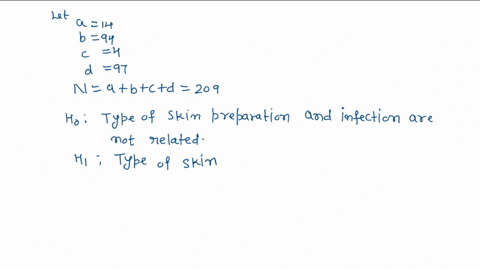 Let
a=14
b=94
c=4
d=97
N=a+b+c+d=209
H₀: Type of skin preparation and infection are
not related.
H₁; Type of skin